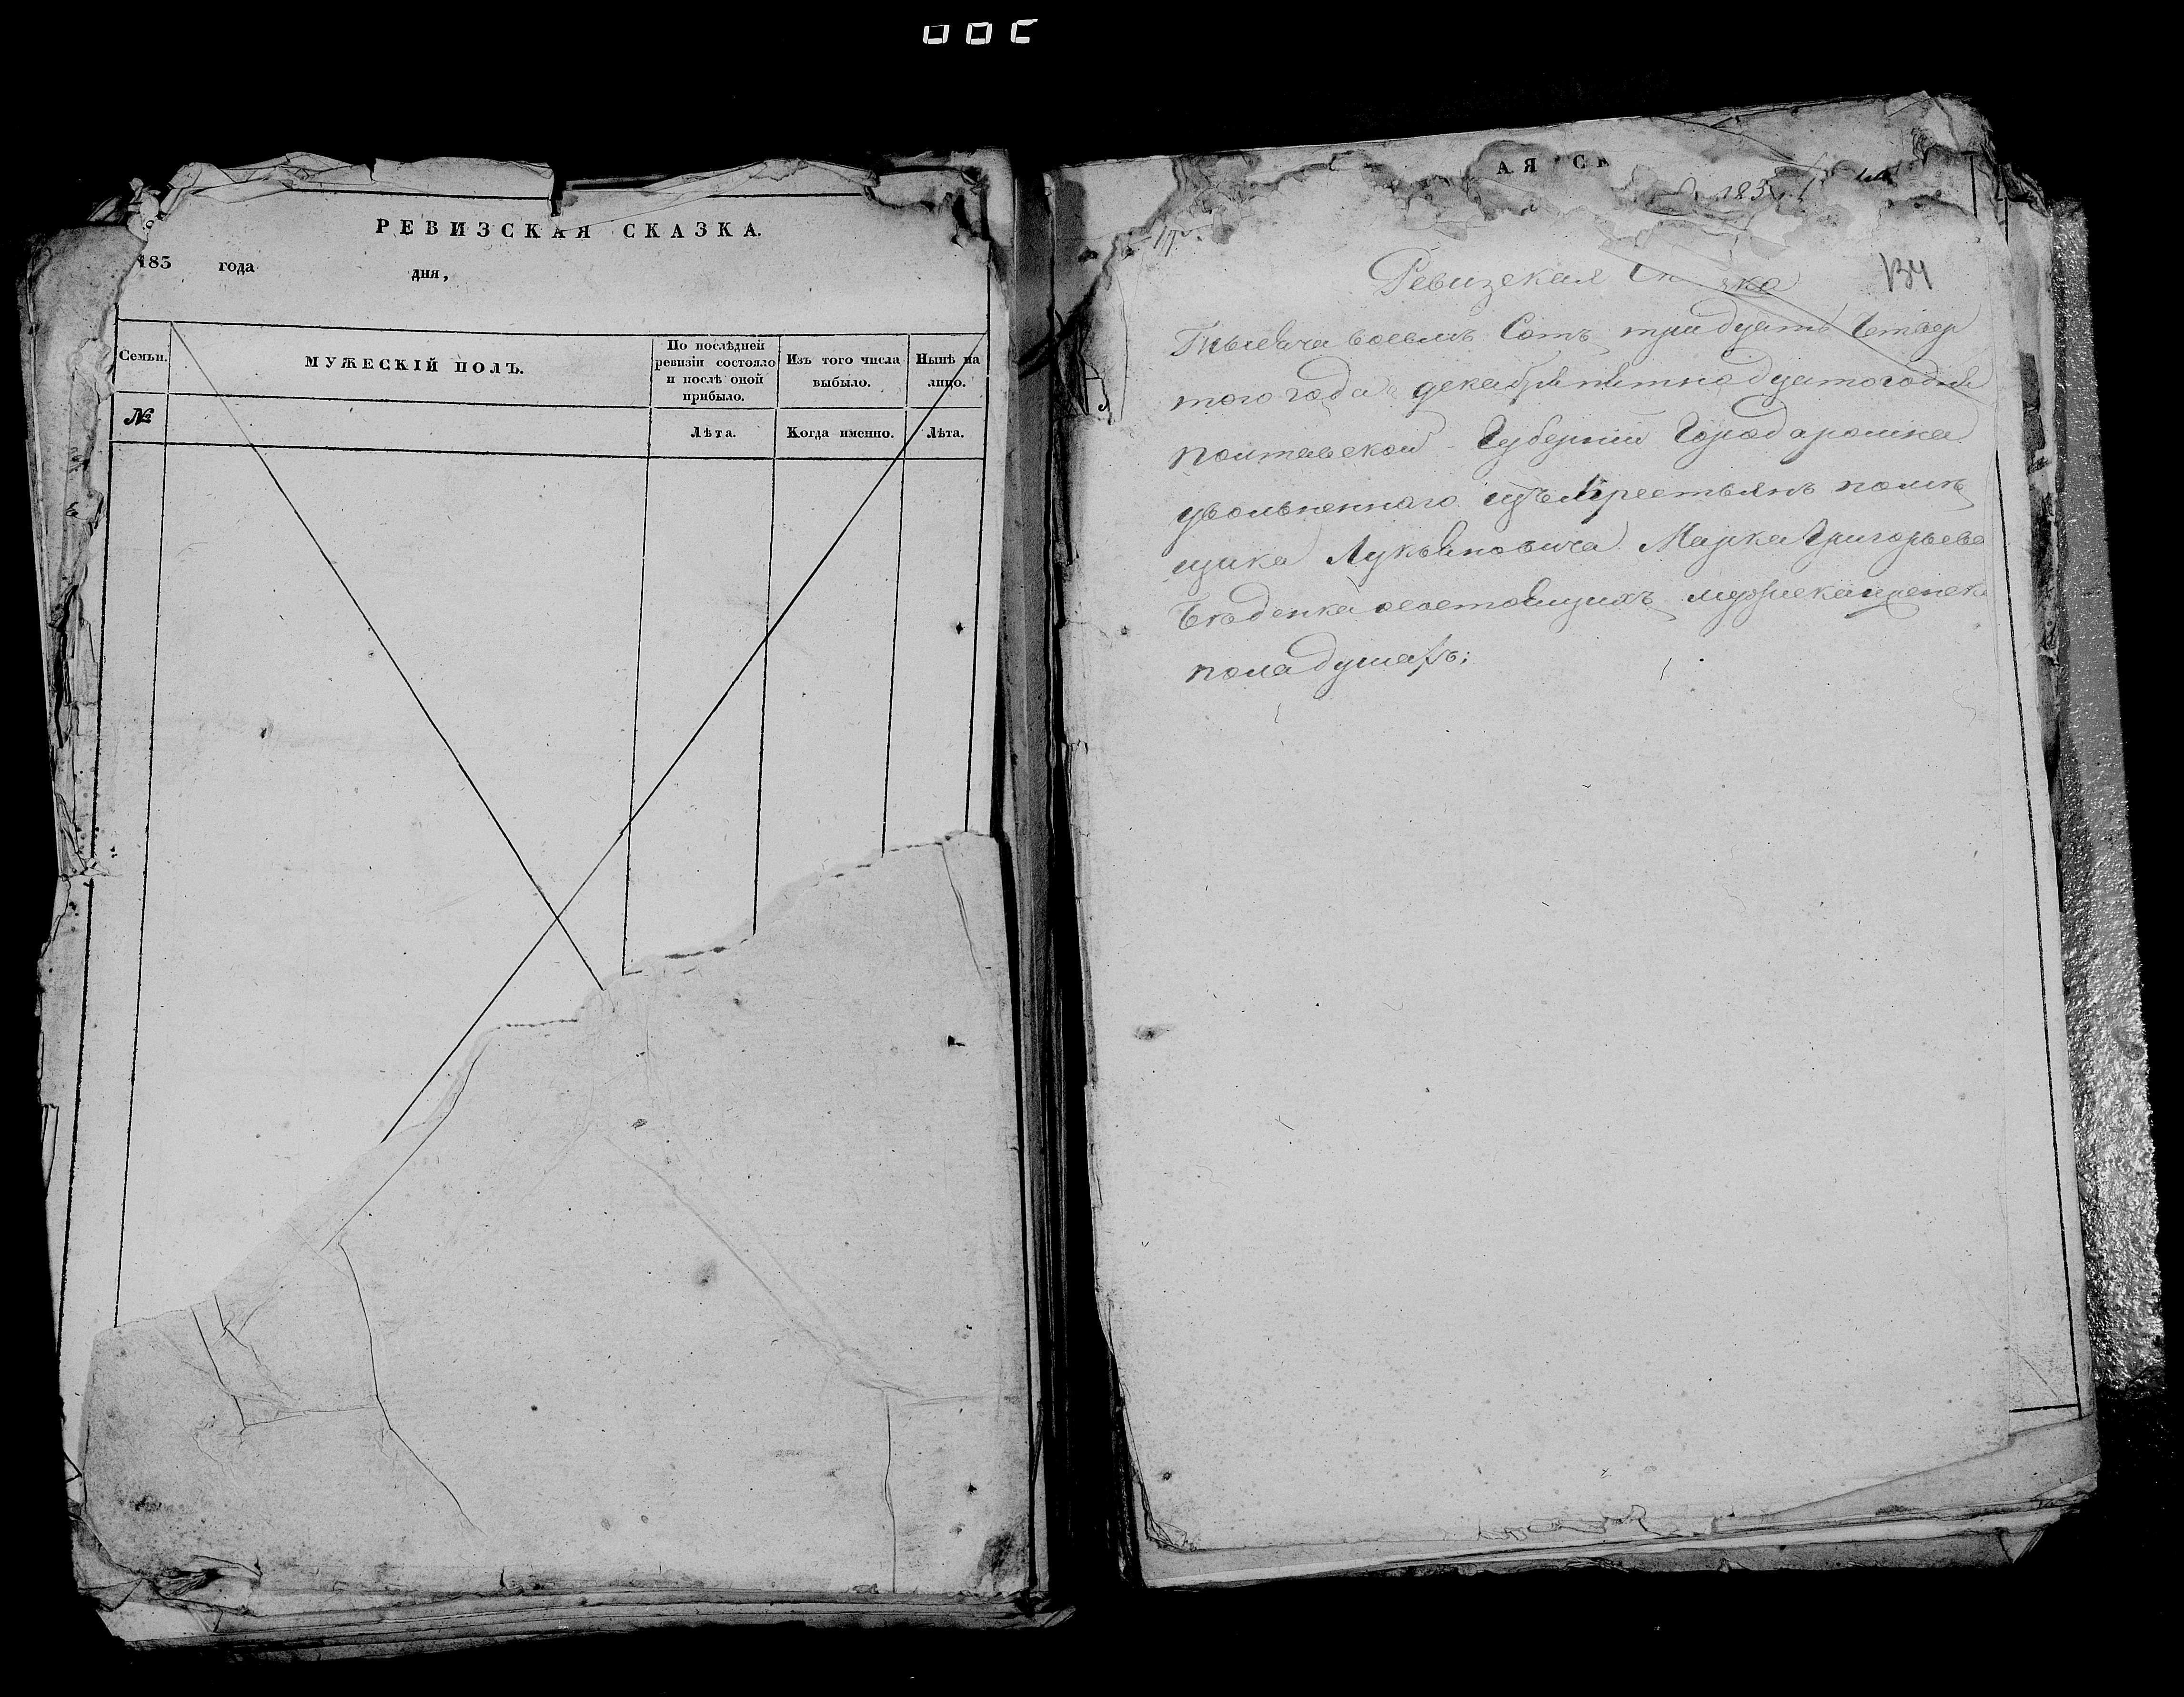 РЕВИЗСКАЯ СКАЗКА.
183 года дня,
Семьи.
МУЖЕСКІЙ ПОЛЪ.
По послѣдней
ревизіи состояло
и послѣ оной
прибыло.
Изъ того числа
выбыло.
Нынѣ на
лицо.
№
Лѣта.
Когда именно.
Лѣта.
АЯ СК
183
134
Ревизская Ск зка
Тысяча восемь Сотъ тридцать Четвер
того года декабря пятнадцатого дня
полтавской Губерніи Города ромна
увольненнаго изъ крестьянъ помѣ
щика Лукьяновича Марка Григорьева
состоящихъ мужеска и женска
пола душахъ;